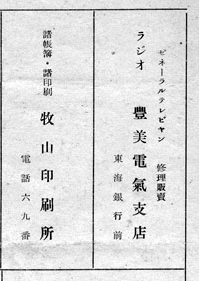 ゼネーラルテレビヤン
ラジオ
修理販売
豐美電氣支店
東海銀行前
諸帳簿・諸印刷
牧山印刷所
電話六九番